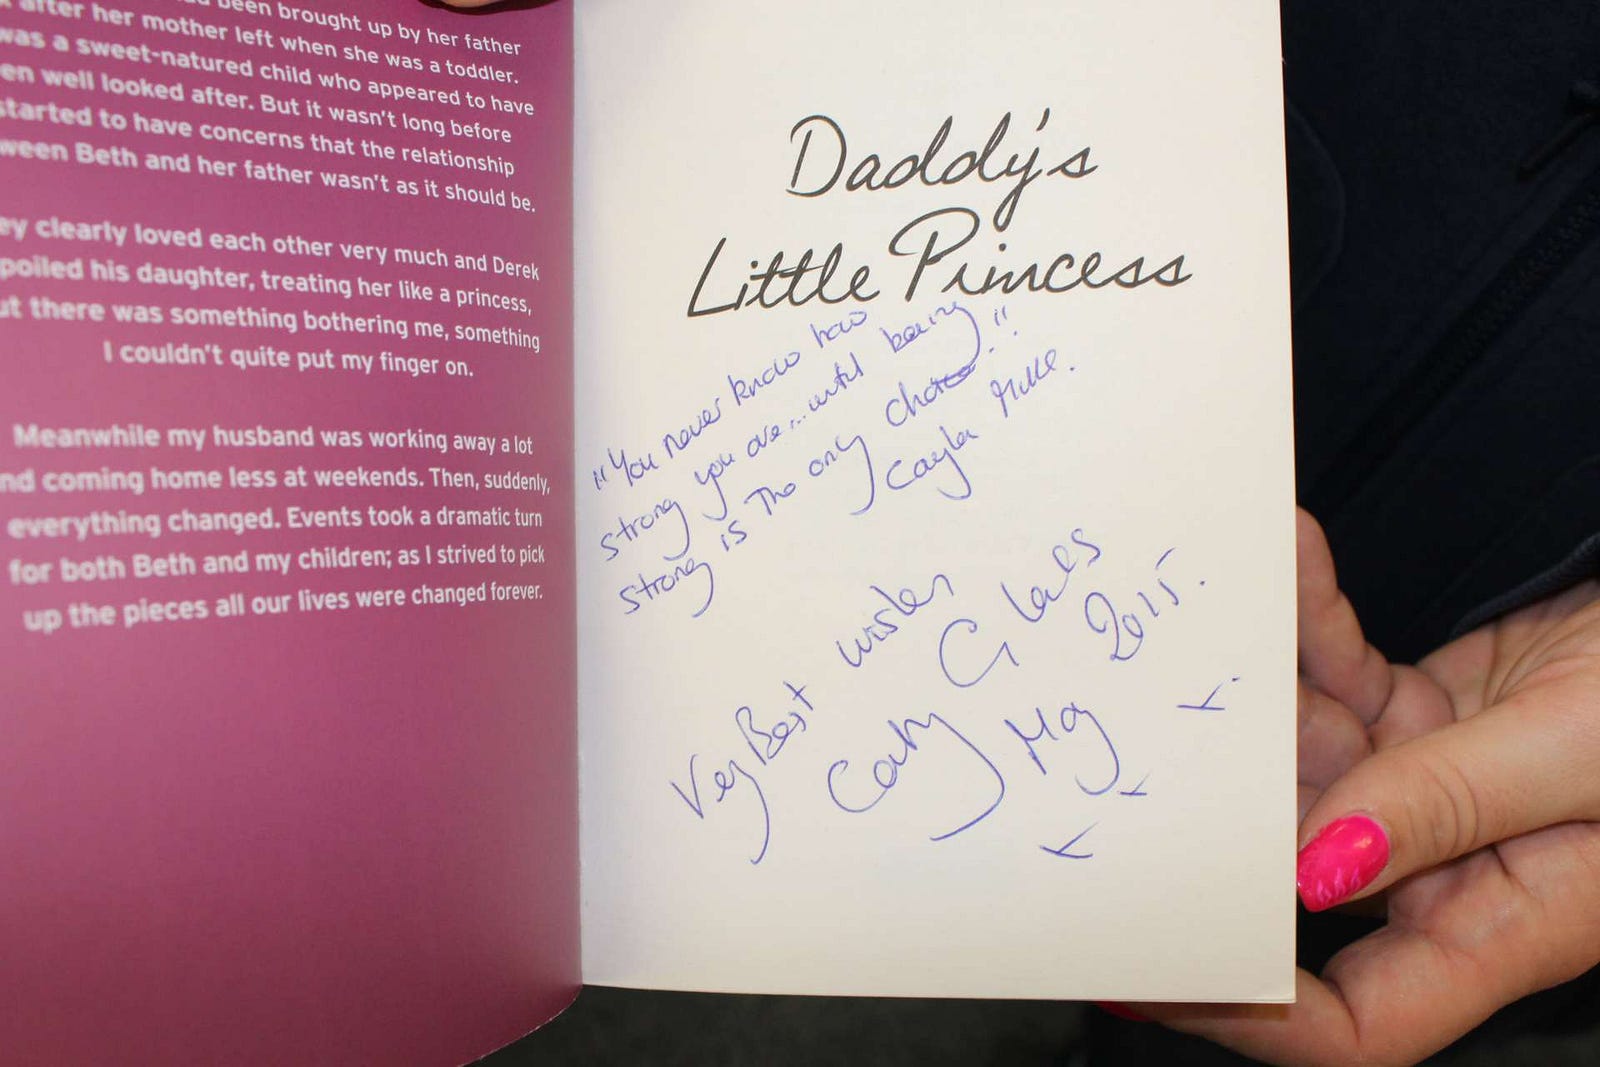 been brought up by her father
after her mother left when she was a toddler.
was a sweet-natured child who appeared to have
en well looked after. But it wasn't long before
started to have concerns that the relationship
ween Beth and her father wasn't as it should be.
ey clearly loved each other very much and Derek
poiled his daughter, treating her like a princess,
ut there was something bothering me, something
I couldn't quite put my finger on.
Meanwhile my husband was working away a lot
nd coming home less at weekends. Then, suddenly,
everything changed. Events took a dramatic turn
for both Beth and my children; as I strived to pick
up the pieces all our lives were changed forever.
Daddy's
Little Princess
"You never know how
strong you are...until being
strong is The only choice."
Cayla Mills.
Very Best wishes
Cathy Glass
May 2015.